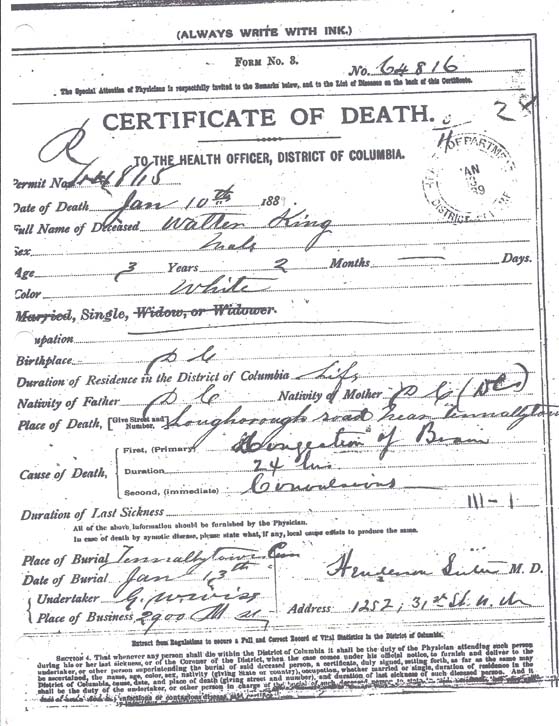 (ALWAYS WRITE WITH INK.)
FORM No. 3.
No. 64816
The Special Attention of Physicians is respectfully invited to the Remarks below, and to the List of Diseases on the back of this Certificate.
CERTIFICATE OF DEATH.
2
TO THE HEALTH OFFICER, DISTRICT OF COLUMBIA.
DEPARTMENT
DISTRICT
Permit No.
Date of Death, Jan 10th 188
Full Name of Deceased Walter King
Sex Male
Age 3 Years 2 Months Days.
Color White
Married, Single, Widow, or Widower.
upation
Birthplace D C
Duration of Residence in the District of Columbia Life
Nativity of Father D C Nativity of Mother D C (DC)
Place of Death, [Give Street and Number,] Loughborough road near Tennallytown
Cause of Death, First, (Primary) Congestion of Brain
Duration 24 hrs
Second, (immediate) Convulsions
Duration of Last Sickness III-1
All of the above information should be furnished by the Physician.
In case of death by zymotic disease, please state what, if any, local cause exists to produce the same.
Place of Burial Tennallytown Cem
Date of Burial Jan 13th
Henderson Suter M. D.
Undertaker G.
Address 1252, 31st St. N. W
Place of Business 2900 M st
Extract from Regulations to secure a Full and Correct Record of Vital Statistics in the District of Columbia.
SECTION 4. That whenever any person shall die within the District of Columbia it shall be the duty of the Physician attending such person
during his or her last sickness, or of the Coroner of the District, when the case comes under his official notice, to furnish and deliver to the
undertaker, or other person superintending the burial of said deceased person, a certificate, duly signed, setting forth, as far as the same may
be ascertained, the name, age, color, sex, nativity (giving State or country), occupation, whether married or single, duration of residence in the
District of Columbia, cause, date, and place of death (giving street and number), and duration of last sickness of such deceased person. And it
shall be the duty of the undertaker, or other person in charge of the burial of such deceased person to state